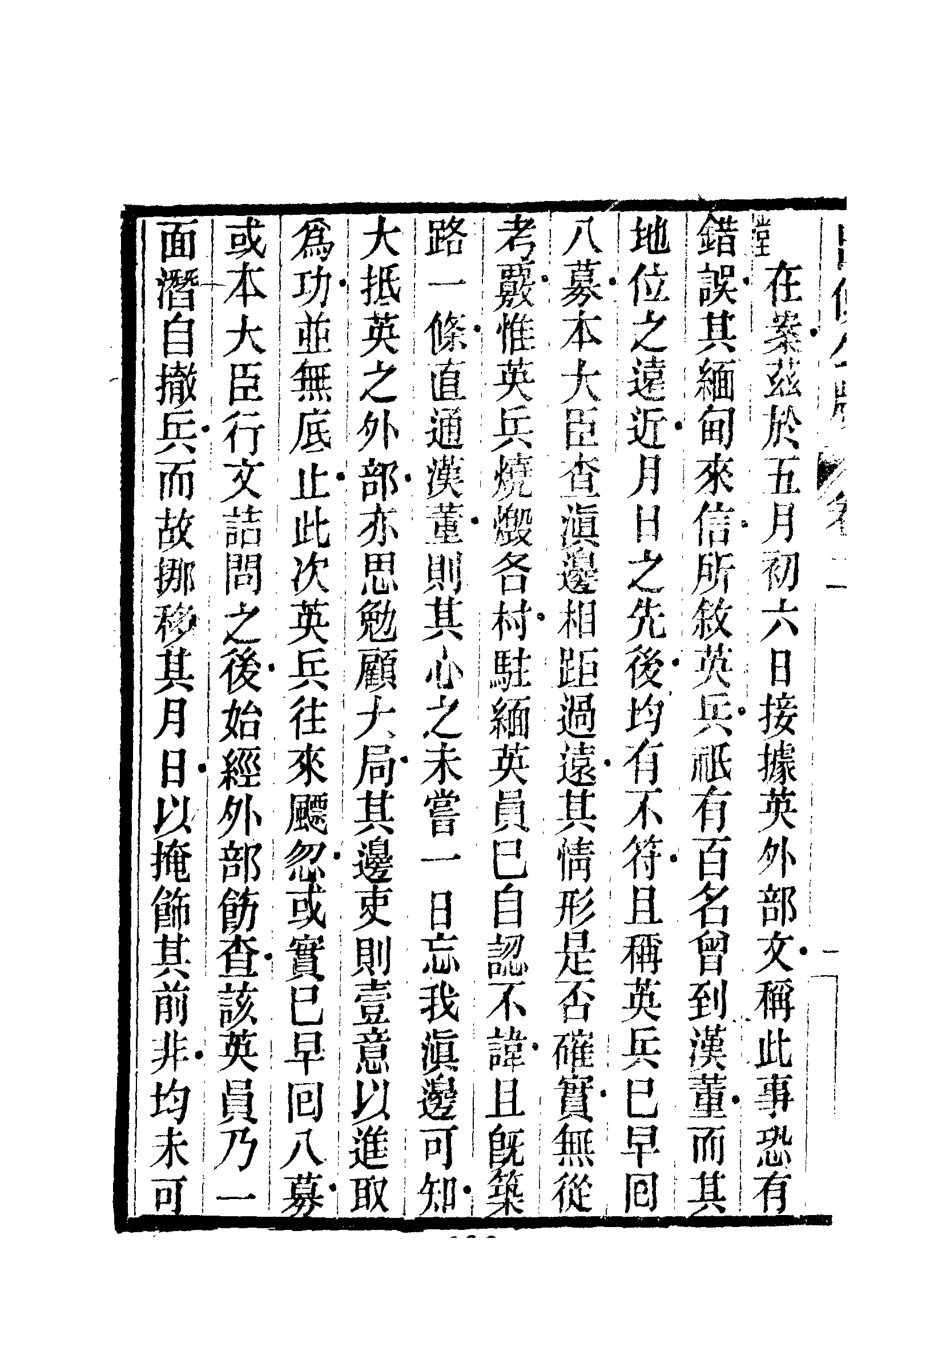 在案茲於五月初六日接據英外部文稱此事恐有
錯誤其緬甸來信所敘英兵祇有百名曾到漢董而其
地位之遠近月日之先後均有不符且稱英兵已早回
八募本大臣查滇邊相距過遠其情形是否確實無從
考覈惟英兵燒燬各村駐緬英員已自認不諱且既築
路一條直通漢董則其心之未嘗一日忘我滇邊可知
大抵英之外部亦思勉顧大局其邊吏則壹意以進取
爲功並無底止此次英兵往來飃忽或實已早回八募
或本大臣行文詰問之後始經外部飭查該英員乃一
面潛自撤兵而故挪移其月日以掩飾其前非均未可